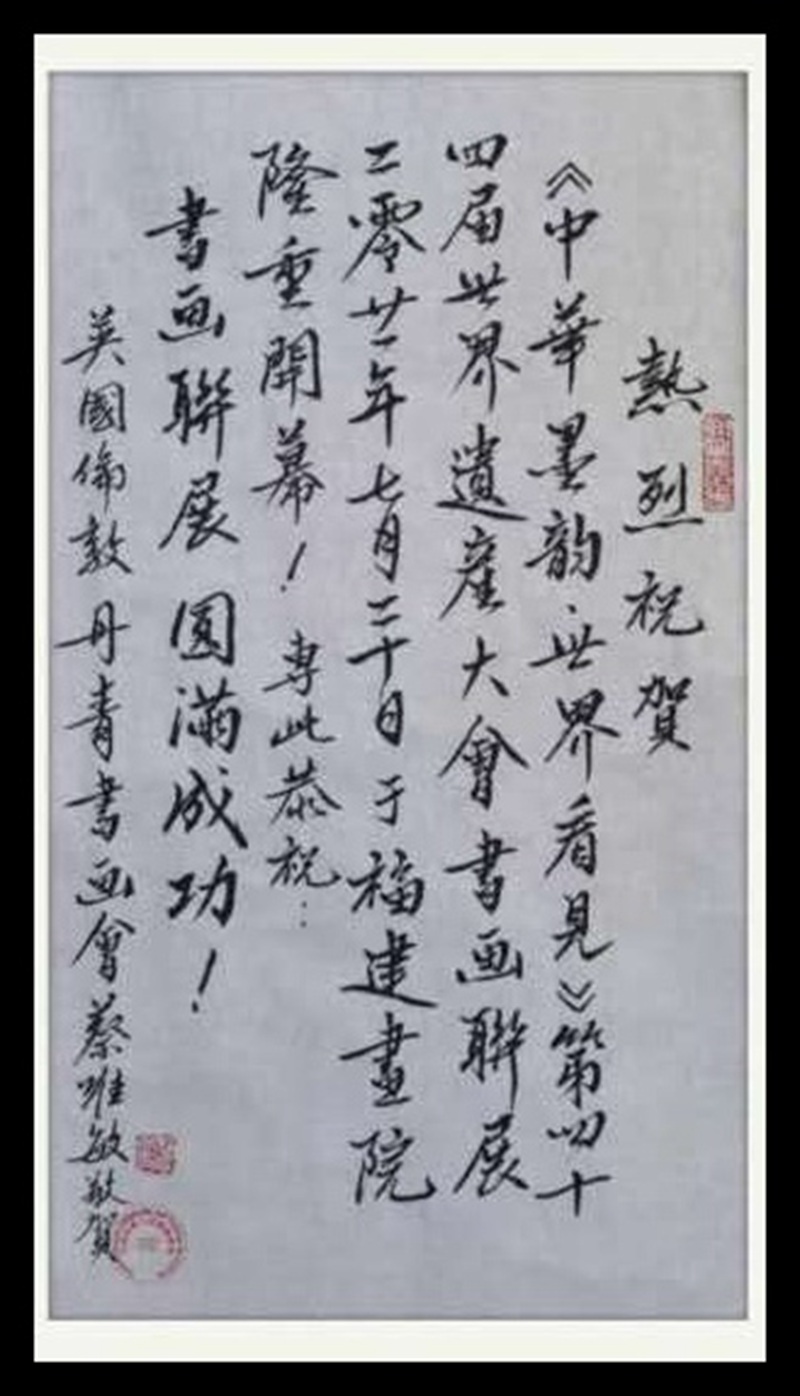 熱烈祝賀
《中華墨韵·世界看見》第四十
四届世界遺産大會書画聯展
二零廿一年七月二十日于福建畫院
隆重開幕！專此恭祝：
書画聯展圆满成功！
英國倫敦丹青書画會蔡唯敏敬賀